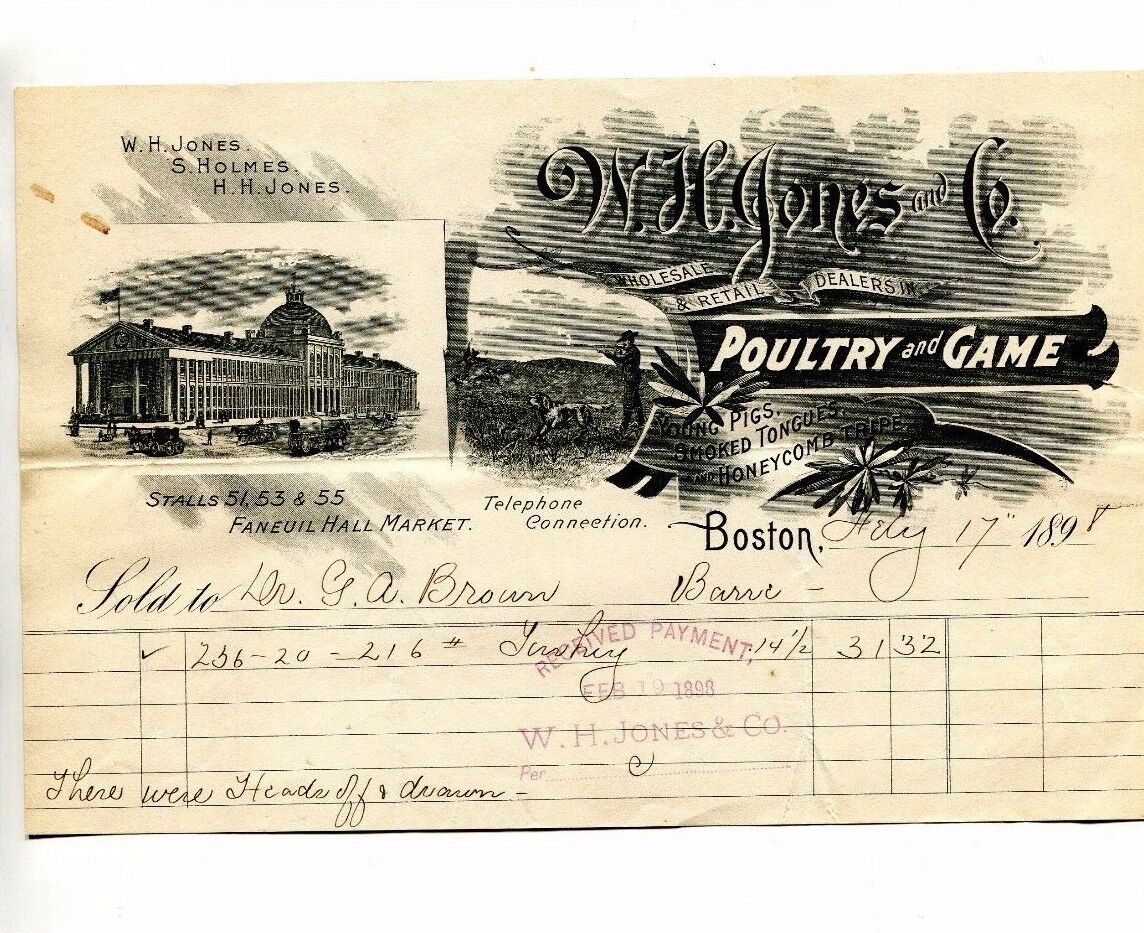 W. H. JONES.
S. HOLMES.
H. H. JONES.
W. H. Jones and Co.
WHOLESALE
& RETAIL
DEALERS IN
POULTRY and GAME
YOUNG PIGS,
SMOKED TONGUES,
AND HONEYCOMB TRIPE
STALLS 51, 53 & 55
FANEUIL HALL MARKET.
Telephone
Connection.
Boston, Feby 17" 1898
Sold to Dr. G. A. Brown Barre -
✓ 236-20-216 # Turkey .14 1/2 31 32
RECEIVED PAYMENT,
FEB 19 1898
W. H. JONES & CO.
Per
There were Heads off & drawn -